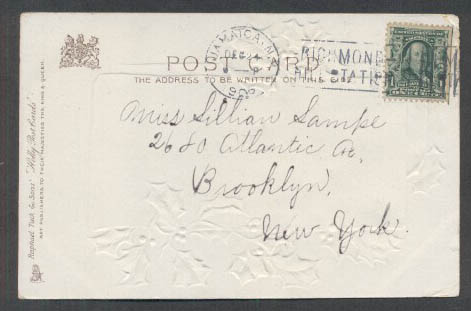 JAMAICA, N.Y.
RICHMOND
STATION
POST CARD
THE ADDRESS TO BE WRITTEN ON THIS SIDE
Miss Lillian Sampe
2680 Atlantic Av.
Brooklyn,
New York.
Raphael Tuck & Sons' "Holly Postcards"
ART PUBLISHERS TO THEIR MAJESTIES THE KING & QUEEN.